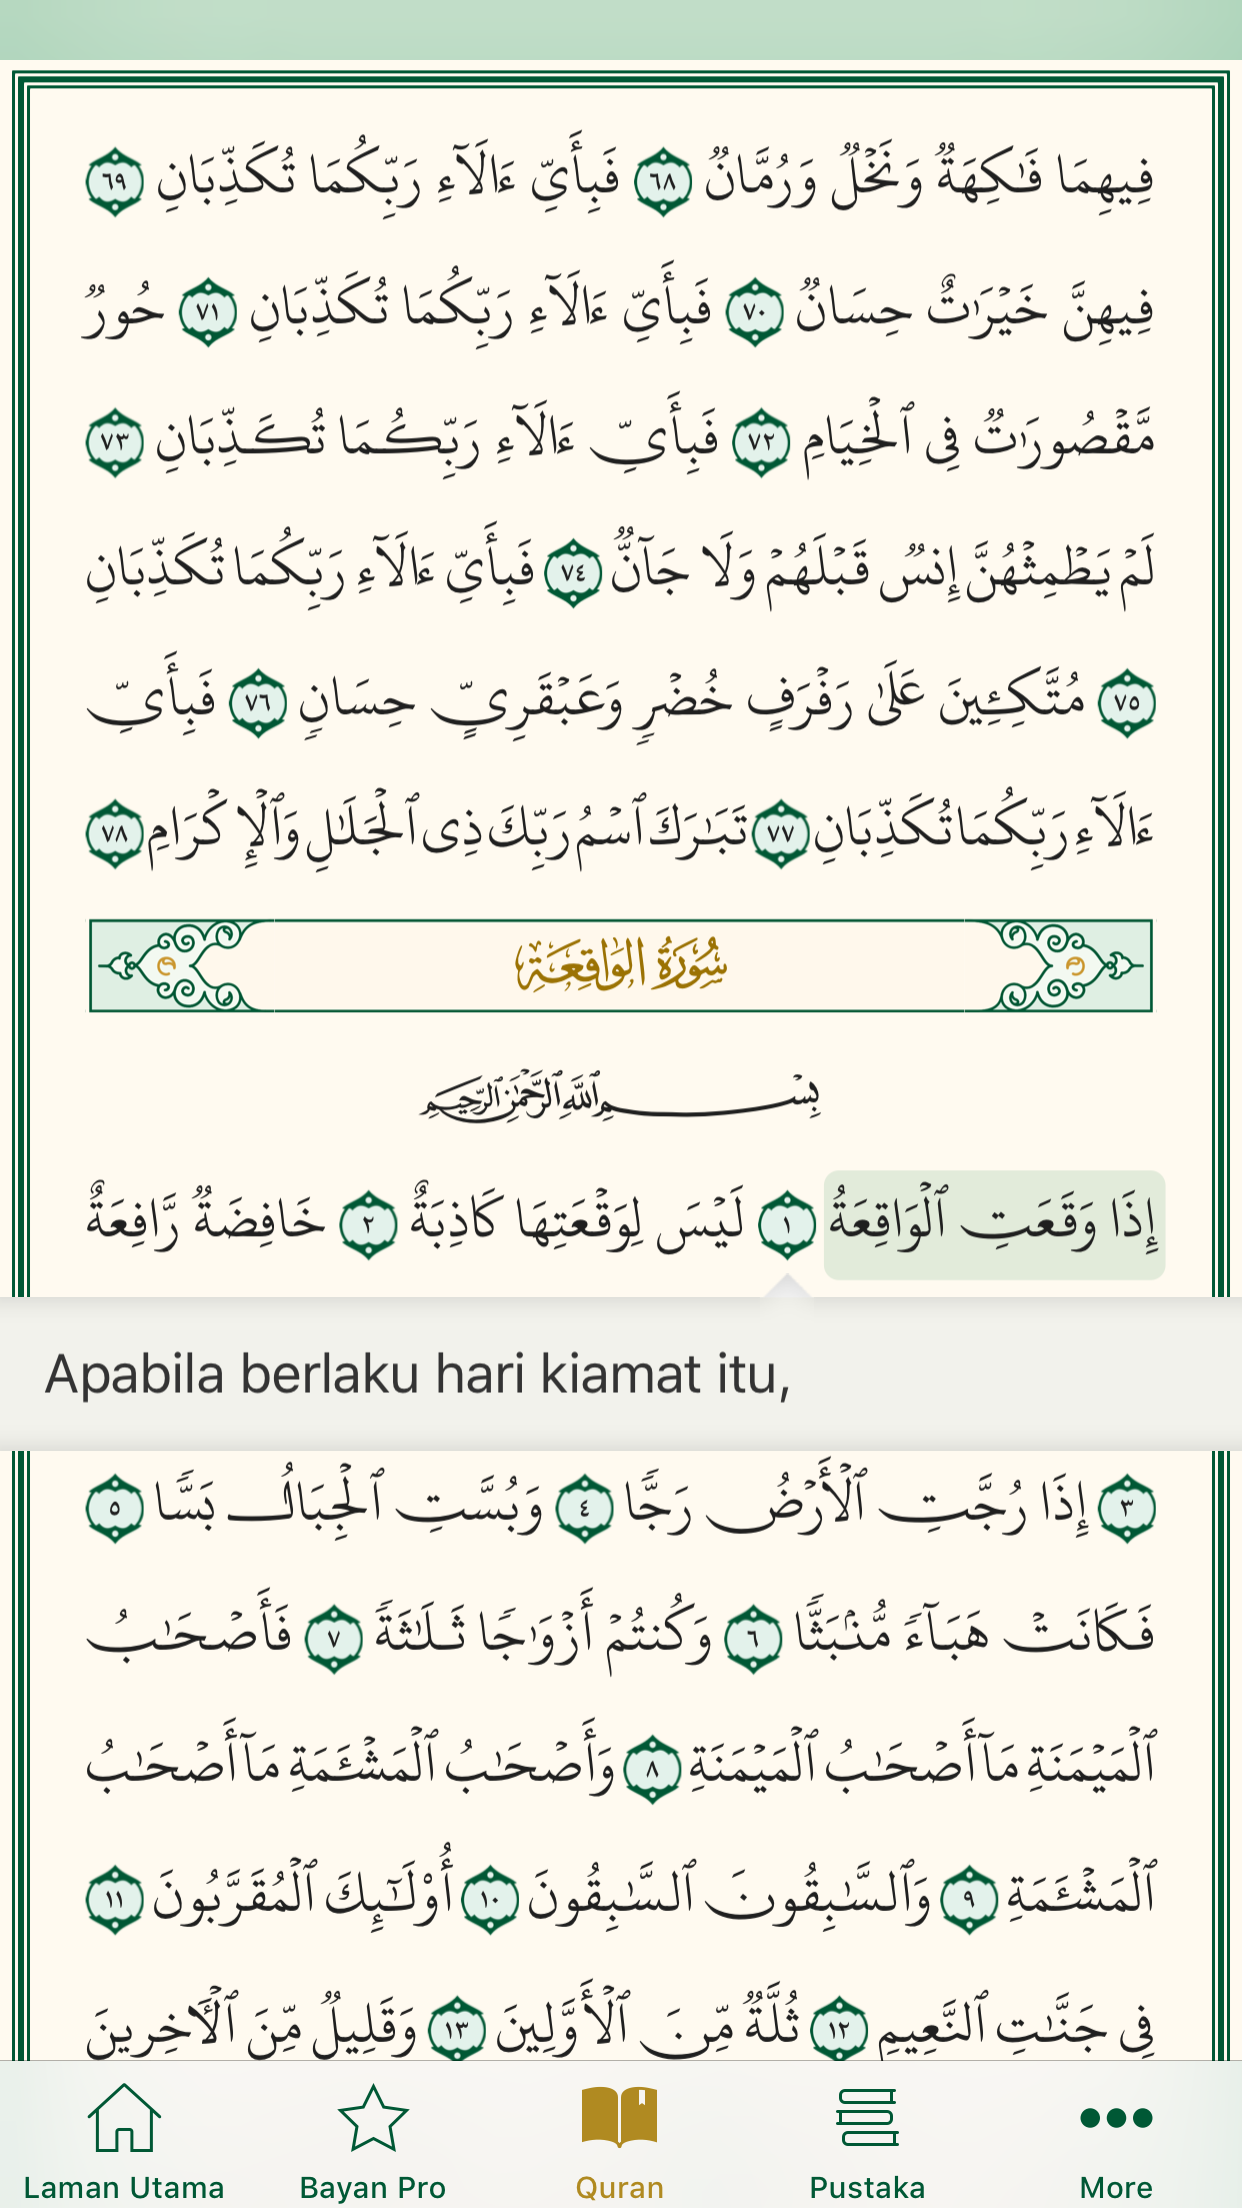 فِيهِمَا فَٰكِهَةٌ وَنَخْلٌ وَرُمَّانٌ ٦٨ فَبِأَيِّ ءَالَآءِ رَبِّكُمَا تُكَذِّبَانِ ٦٩
فِيهِنَّ خَيْرَٰتٌ حِسَانٌ ٧٠ فَبِأَيِّ ءَالَآءِ رَبِّكُمَا تُكَذِّبَانِ ٧١ حُورٌ
مَّقْصُورَٰتٌ فِى ٱلْخِيَامِ ٧٢ فَبِأَيِّ ءَالَآءِ رَبِّكُمَا تُكَذِّبَانِ ٧٣
لَمْ يَطْمِثْهُنَّ إِنسٌ قَبْلَهُمْ وَلَا جَآنٌّ ٧٤ فَبِأَيِّ ءَالَآءِ رَبِّكُمَا تُكَذِّبَانِ
٧٥ مُتَّكِـِٔينَ عَلَىٰ رَفْرَفٍ خُضْرٍ وَعَبْقَرِيٍّ حِسَانٍ ٧٦ فَبِأَيِّ
ءَالَآءِ رَبِّكُمَا تُكَذِّبَانِ ٧٧ تَبَٰرَكَ ٱسْمُ رَبِّكَ ذِى ٱلْجَلَٰلِ وَٱلْإِكْرَامِ ٧٨
سُورَةُ الوَاقِعَةِ
بِسْمِ ٱللَّهِ ٱلرَّحْمَٰنِ ٱلرَّحِيمِ
إِذَا وَقَعَتِ ٱلْوَاقِعَةُ ١ لَيْسَ لِوَقْعَتِهَا كَاذِبَةٌ ٢ خَافِضَةٌ رَّافِعَةٌ
Apabila berlaku hari kiamat itu,
٣ إِذَا رُجَّتِ ٱلْأَرْضُ رَجًّا ٤ وَبُسَّتِ ٱلْجِبَالُ بَسًّا ٥
فَكَانَتْ هَبَآءً مُّنۢبَثًّا ٦ وَكُنتُمْ أَزْوَٰجًا ثَلَٰثَةً ٧ فَأَصْحَٰبُ
ٱلْمَيْمَنَةِ مَآ أَصْحَٰبُ ٱلْمَيْمَنَةِ ٨ وَأَصْحَٰبُ ٱلْمَشْـَٔمَةِ مَآ أَصْحَٰبُ
ٱلْمَشْـَٔمَةِ ٩ وَٱلسَّٰبِقُونَ ٱلسَّٰبِقُونَ ١٠ أُوْلَٰٓئِكَ ٱلْمُقَرَّبُونَ ١١
فِى جَنَّٰتِ ٱلنَّعِيمِ ١٢ ثُلَّةٌ مِّنَ ٱلْأَوَّلِينَ ١٣ وَقَلِيلٌ مِّنَ ٱلْـَٔاخِرِينَ
Laman Utama
Bayan Pro
Quran
Pustaka
More